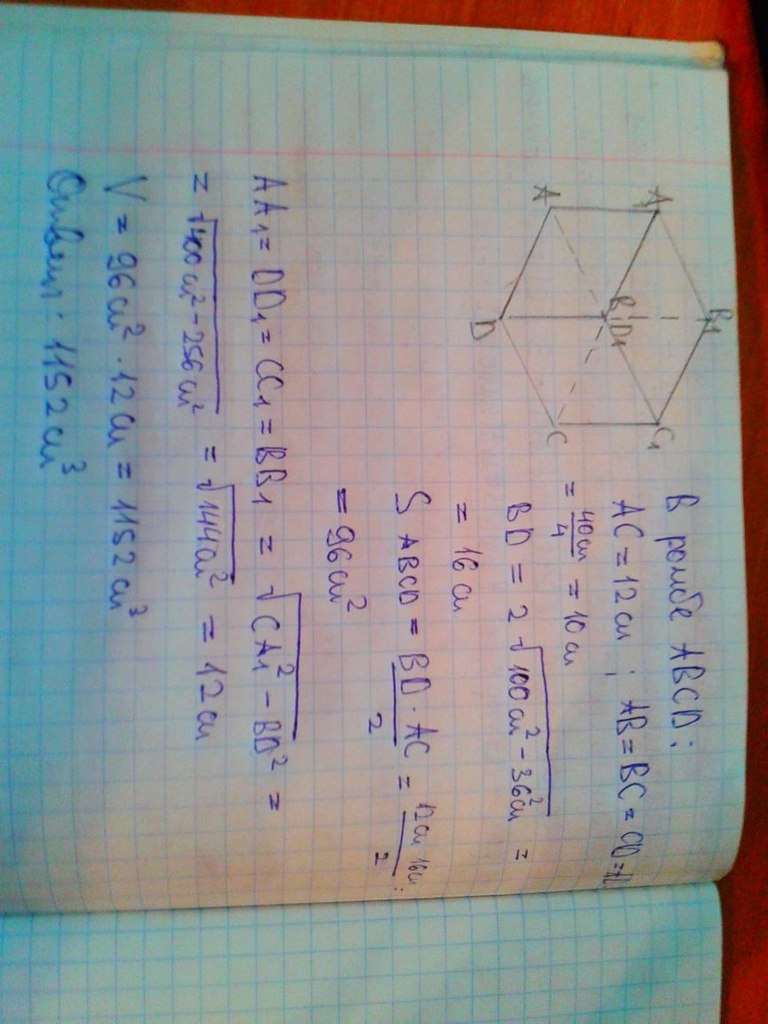 A1
B1
C1
B
D1
A
D
C
В ромбе ABCD:
AC = 12 см ; AB = BC = CD =
= 40 см/4 = 10 см
BD = 2 √100 см² - 36 см² =
= 16 см
S ABCD = BD · AC / 2 = 12 см 16 см / 2 =
= 96 см²
AA1 = DD1 = CC1 = BB1 = √CA1² - BD² =
= √400 см² - 256 см² = √144 см² = 12 см
V = 96 см² · 12 см = 1152 см³
Ответ: 1152 см³